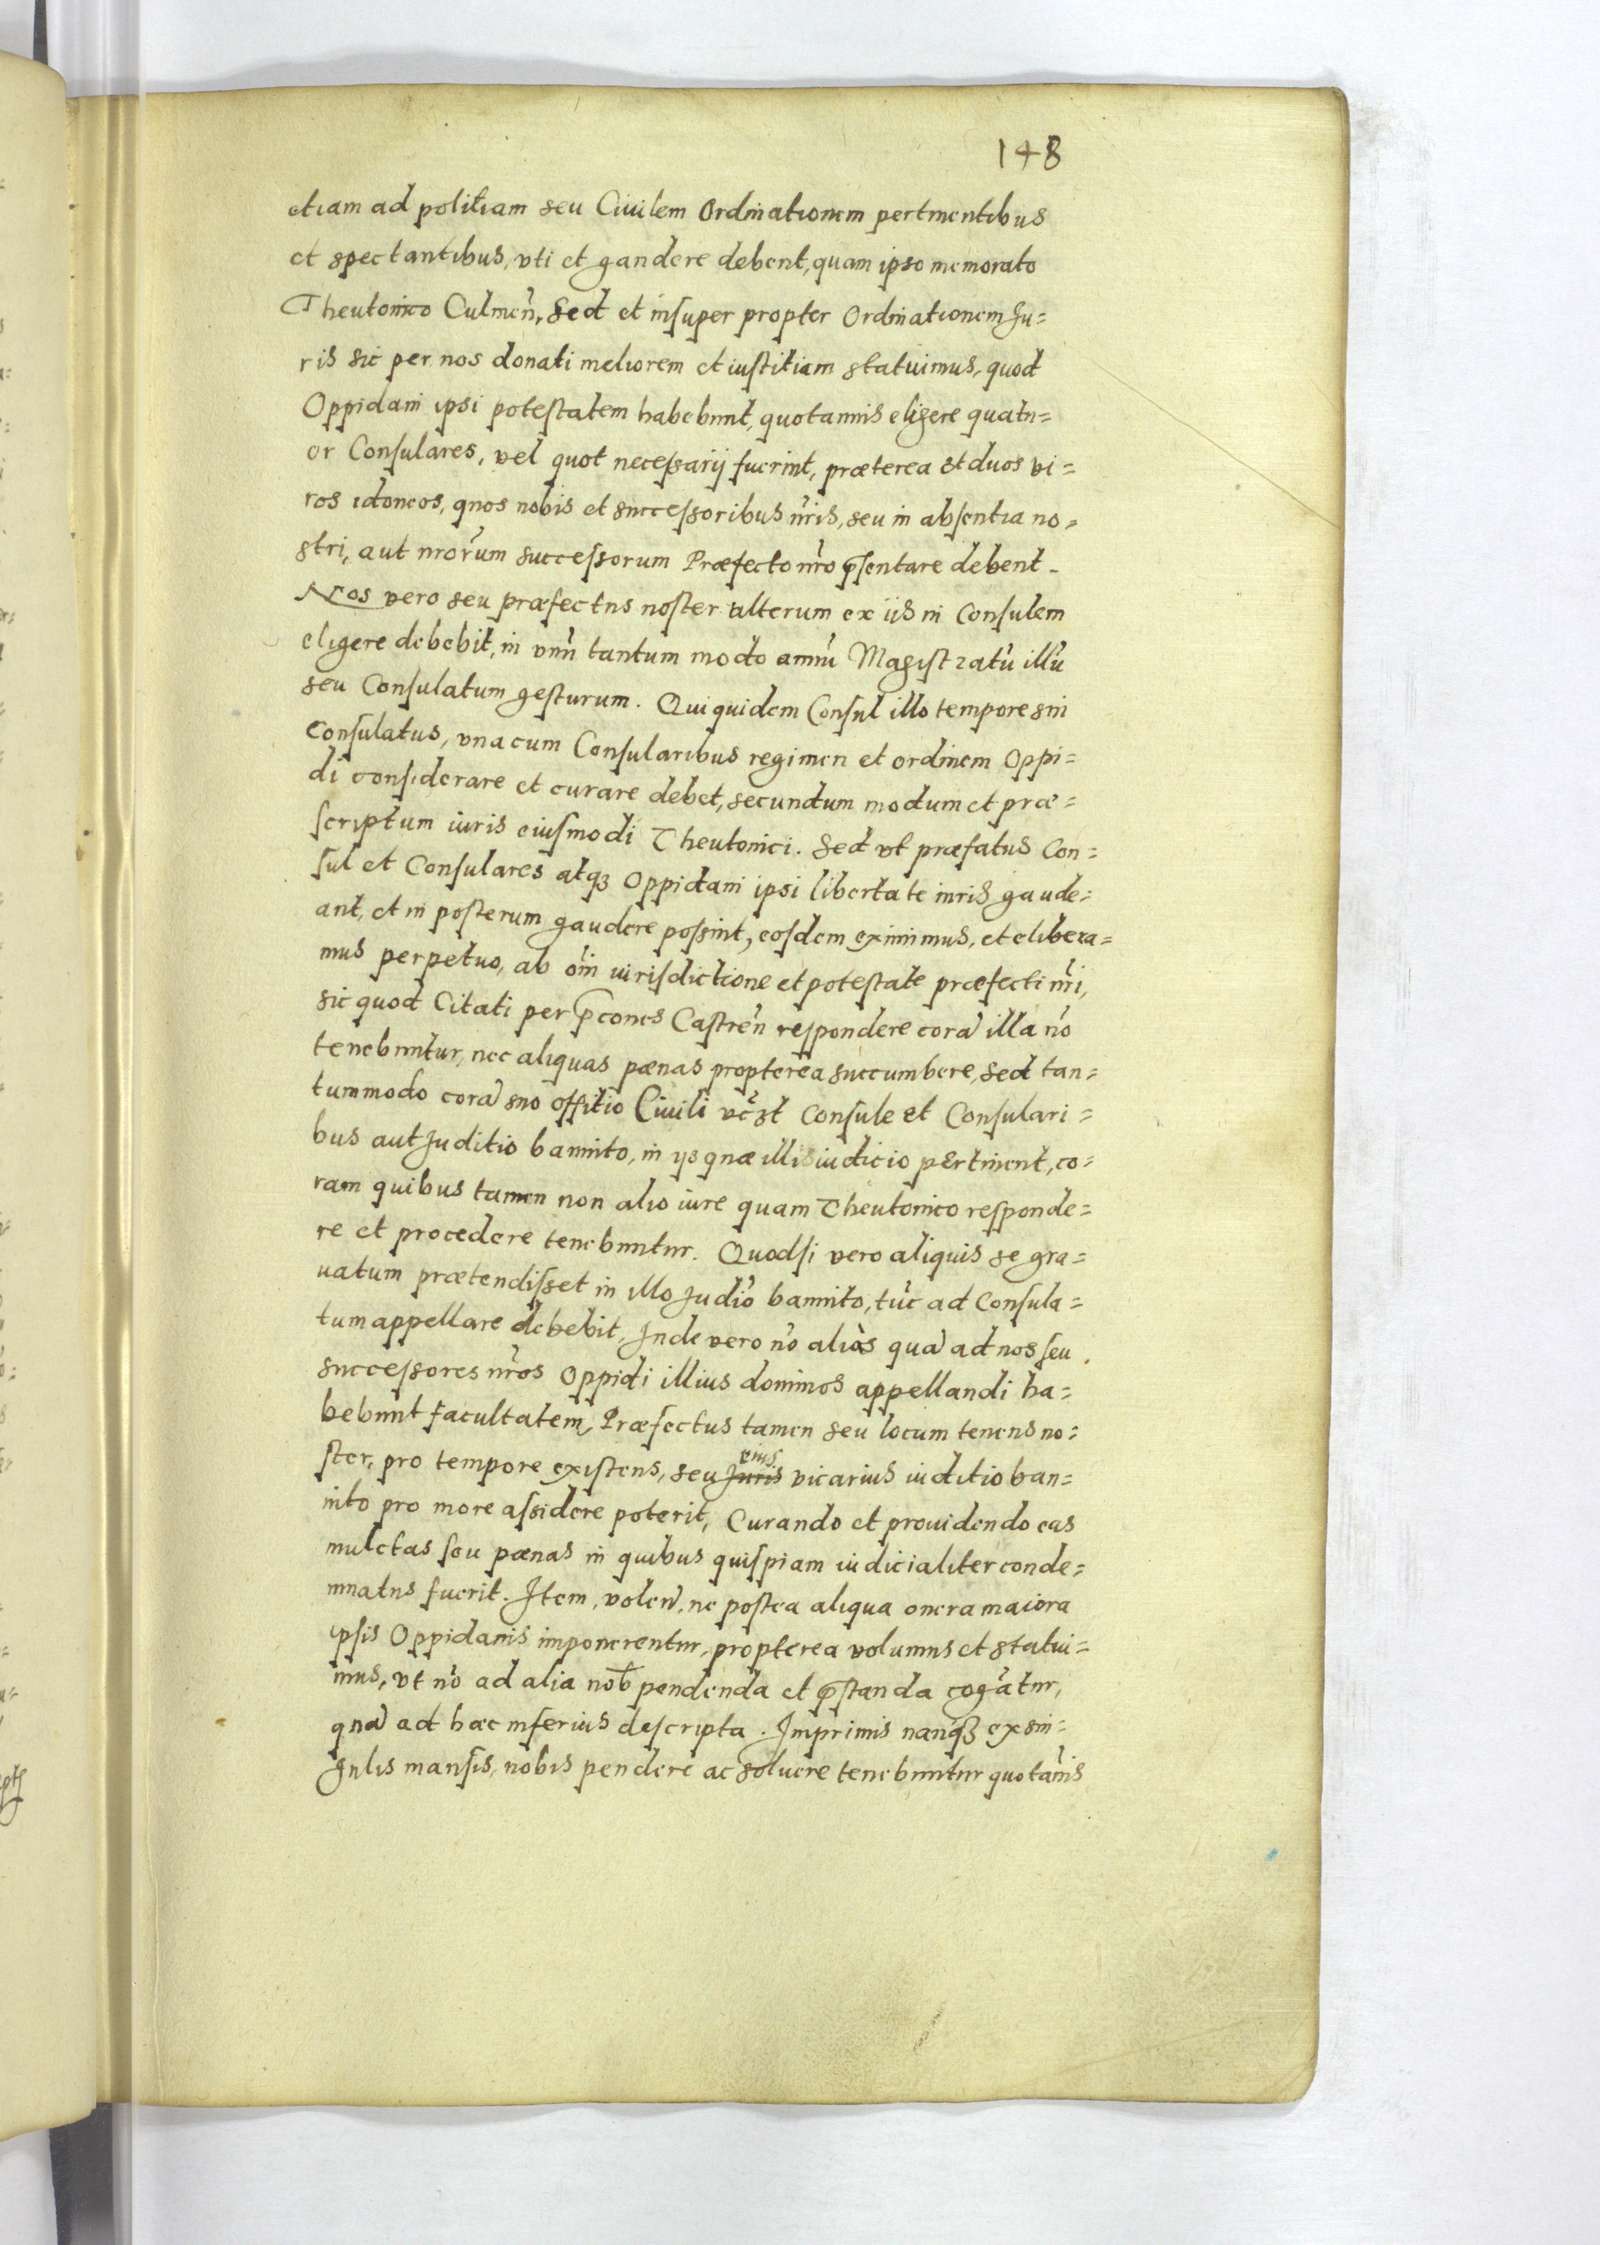 148
etiam ad politiam seu Ciuilem Ordinationem pertinentibus
et spectantibus, vti et gaudere debent, quam ipso memorato
Theutonico Culmeñ, Sed et insuper propter Ordinationem Ju=
ris sic per nos donati meliorem et iustitiam statuimus, quod
Oppidani ipsi potestatem habebunt, quotannis eligere quatu=
or Consulares, vel quot necessarij fuerint, præterea et duos vi=
ros idoneos, quos nobis et successoribus nr̃is, seu in absentia no=
stri, aut nrorũm successorum Præfecto nr̃o p̃sentare debent.
Nos vero seu præfectus noster alterum ex iis in Consulem
eligere debebit, in vnũ tantum modo annũ Magistratũ illũ
seu Consulatum gesturum. Qui quidem Consul illo tempore sui
Consulatus, vna cum Consularibus regimen et ordinem Oppi=
di considerare et curare debet, secundum modum et præ=
scriptum iuris eiusmodi Theutonici. Sed vt præfatus Con=
sul et Consulares atqꝫ Oppidani ipsi libertate iuris gaude=
ant, et in posterum gaudere possint, eosdem eximimus, et elibera=
mus perpetuo, ab om̃i iurisdictione et potestate præfecti nr̃i,
sic quod Citati per p̃cones Castreñ respondere corã illa nõ
tenebuntur, nec aliquas pænas propterea succumbere, Sed tan=
tummodo corã suo offitio Ciuili vcꝫt Consule et Consulari=
bus aut Juditio bannito, in ys quæ illis iudicio pertinent, co=
ram quibus tamen non alio iure quam Theutonico responde=
re et procedere tenebuntur. Quodsi vero aliquis se gra=
uatum prætendisset in illo Judiõ bannito, tũc ad Consula=
tum appellare debebit, Inde vero nõ aliàs quã ad nos seu
successores nr̃os Oppidi illius dominos appellandi ha=
bebunt facultatem, Præfectus tamen seu locum tenens no=
ster, pro tempore existens, seu Juris eius vicarius iuditio ban=
nito pro more assidere poterit, Curando et prouidendo eas
mulctas seu pænas in quibus quispiam iudicialiter conde=
mnatus fuerit. Item, voleñ, ne postea aliqua onera maiora
ipsis Oppidanis imponerentur, propterea volumus et statui=
mus, vt nõ ad alia nob̃ pendenda et p̃standa cogãtur,
quã ad hæc inferius descripta. Imprimis nanqꝫ ex sin=
gulis mansis, nobis pendere ac soluere tenebuntur quotañis